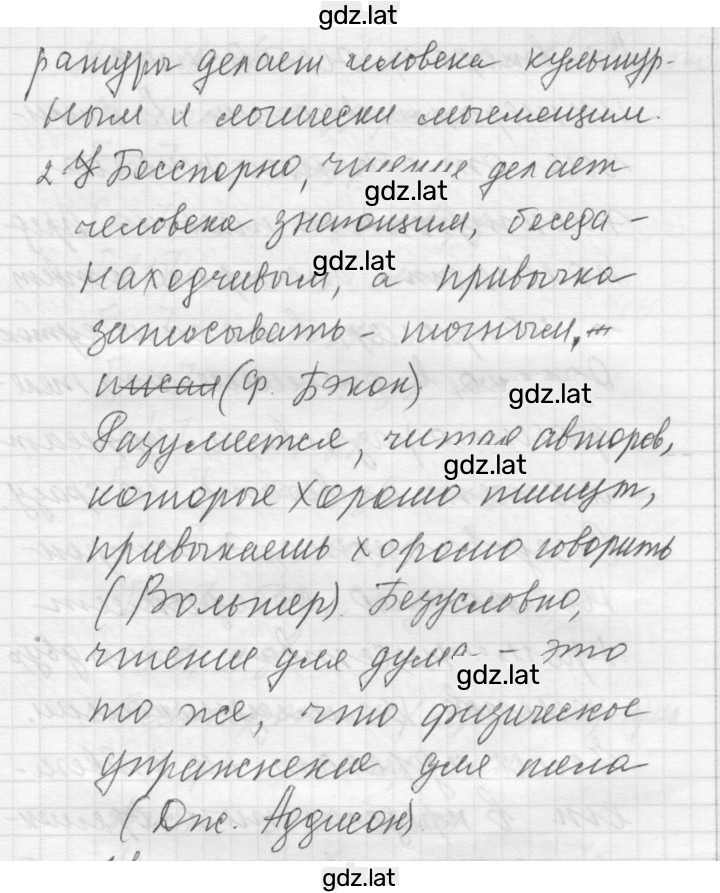 gdz.lat
ратуры делает человека культур-
ным и логически мыслящим.
2. Бесспорно, чтение делает
gdz.lat
человека знающим, беседа -
gdz.lat
находчивым, а привычка
записывать - точным,
писал (Ф. Бэкон)
gdz.lat
Разумеется, читая авторов,
gdz.lat
которые хорошо пишут,
привыкаешь хорошо говорить
(Вольтер). Безусловно,
чтение для ума - это
gdz.lat
то же, что физическое
упражнение для тела
(Дж. Аддисон).
gdz.lat